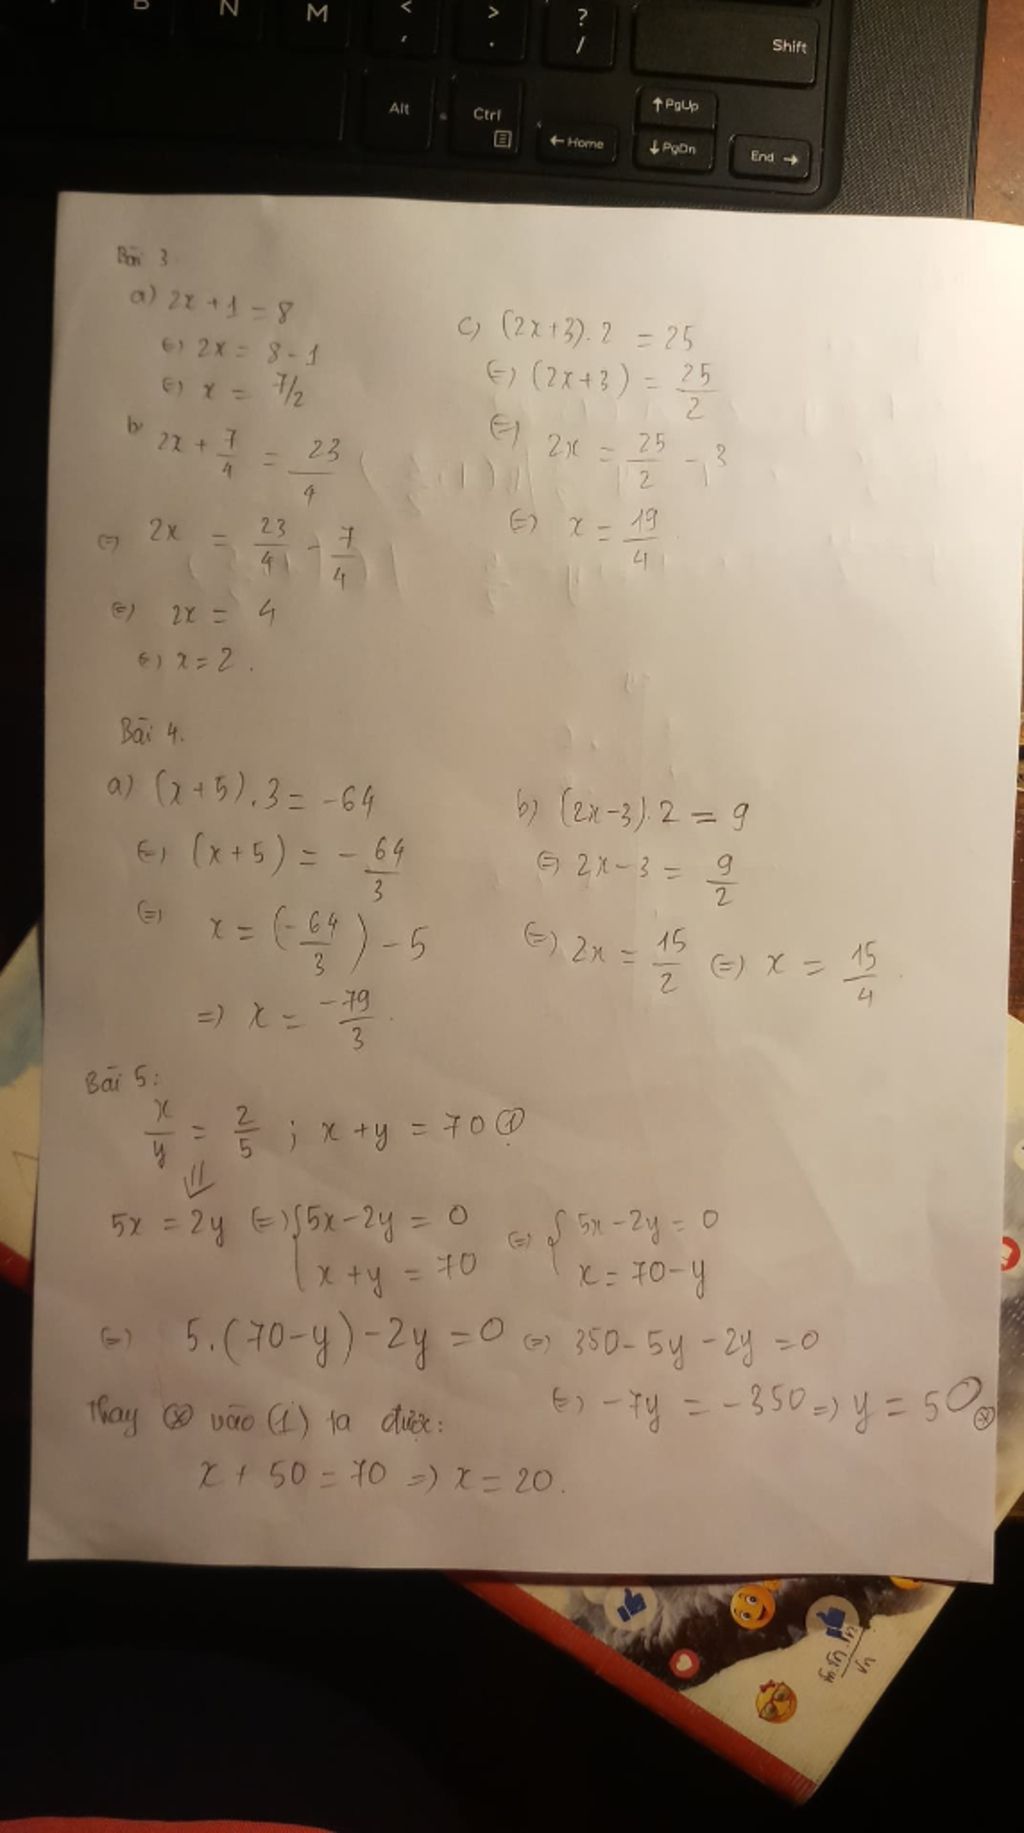 B N M < , > . ? / Shift
Alt Ctrl ←Home ↑PgUp ↓PgDn End →
Bài 3
a) 2x + 1 = 8
(=) 2x = 8 - 1
(=) x = 7/2
b) 2x + 7/4 = 23/4
(=) 2x = 23/4 - 7/4
(=) 2x = 4
(=) x = 2.
c) (2x+3).2 = 25
(=) (2x+3) = 25/2
(=) 2x = 25/2 - 3
(=) x = 19/4
Bài 4.
a) (x+5).3 = -64
(=) (x+5) = -64/3
(=) x = (-64/3) - 5
=) x = -79/3.
b) (2x-3).2 = 9
(=) 2x-3 = 9/2
(=) 2x = 15/2 (=) x = 15/4.
Bài 5:
x/y = 2/5 ; x+y = 70 ①
⇓
5x = 2y (=) { 5x-2y = 0 (=) { 5x-2y = 0
x+y = 70 x = 70-y
(=) 5.(70-y)-2y = 0 (=) 350-5y-2y = 0
(=) -7y = -350 =) y = 50 ⊛
Thay ⊛ vào (1) ta được:
x + 50 = 70 =) x = 20.